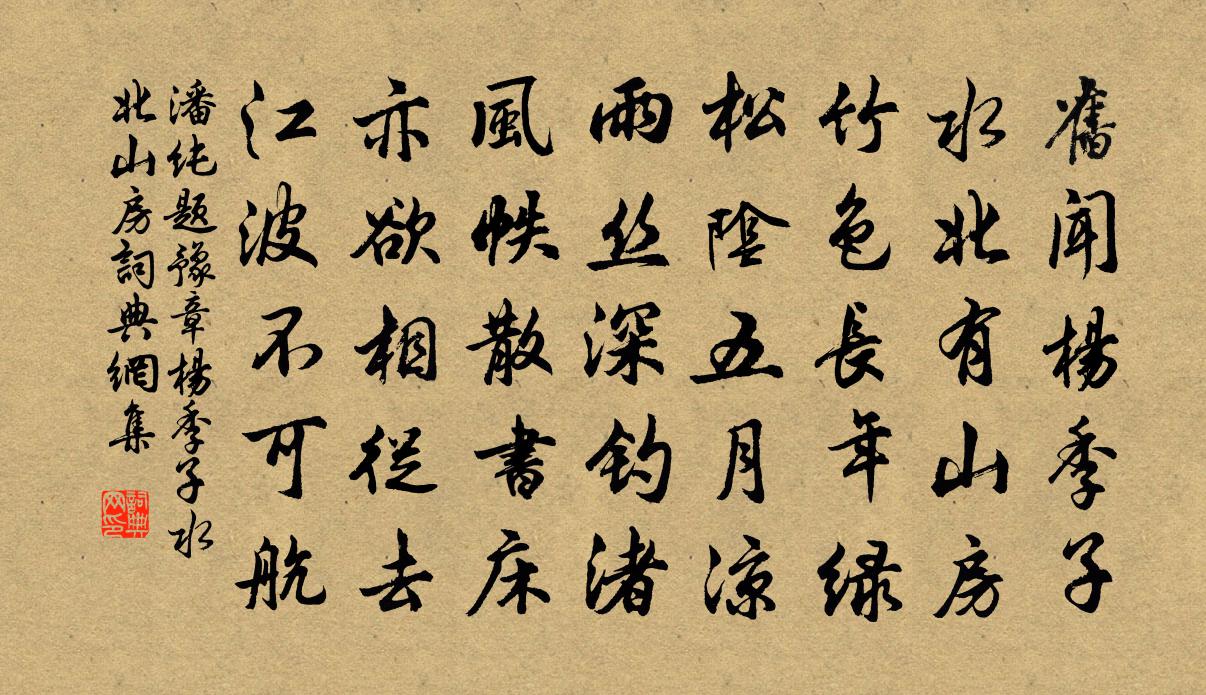 舊聞楊季子
水北有山房
竹色長年緑
松陰五月凉
雨丝深釣渚
風帙散書床
亦欲相從去
江波不可航
潘纯题豫章楊季子水
北山房詞典網集
詞典
网印